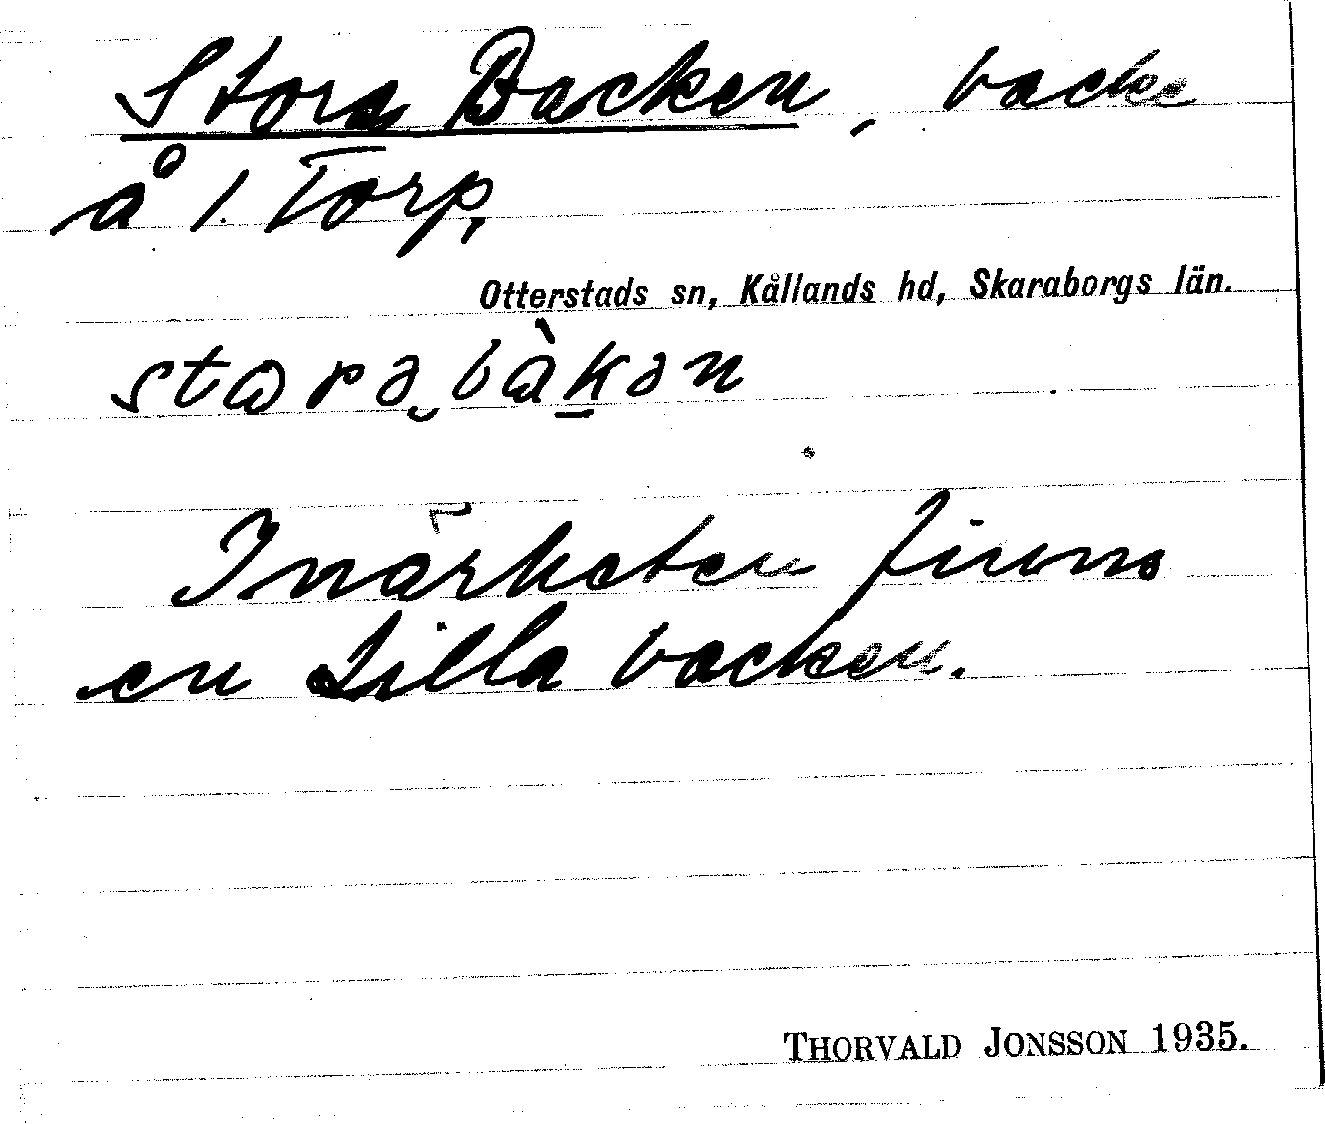 Stora Backen, backe
å 1. Torp,
Otterstads sn, Kållands hd, Skaraborgs län.
I närheten finns
en Lilla backen.
THORVALD JONSSON 1935.